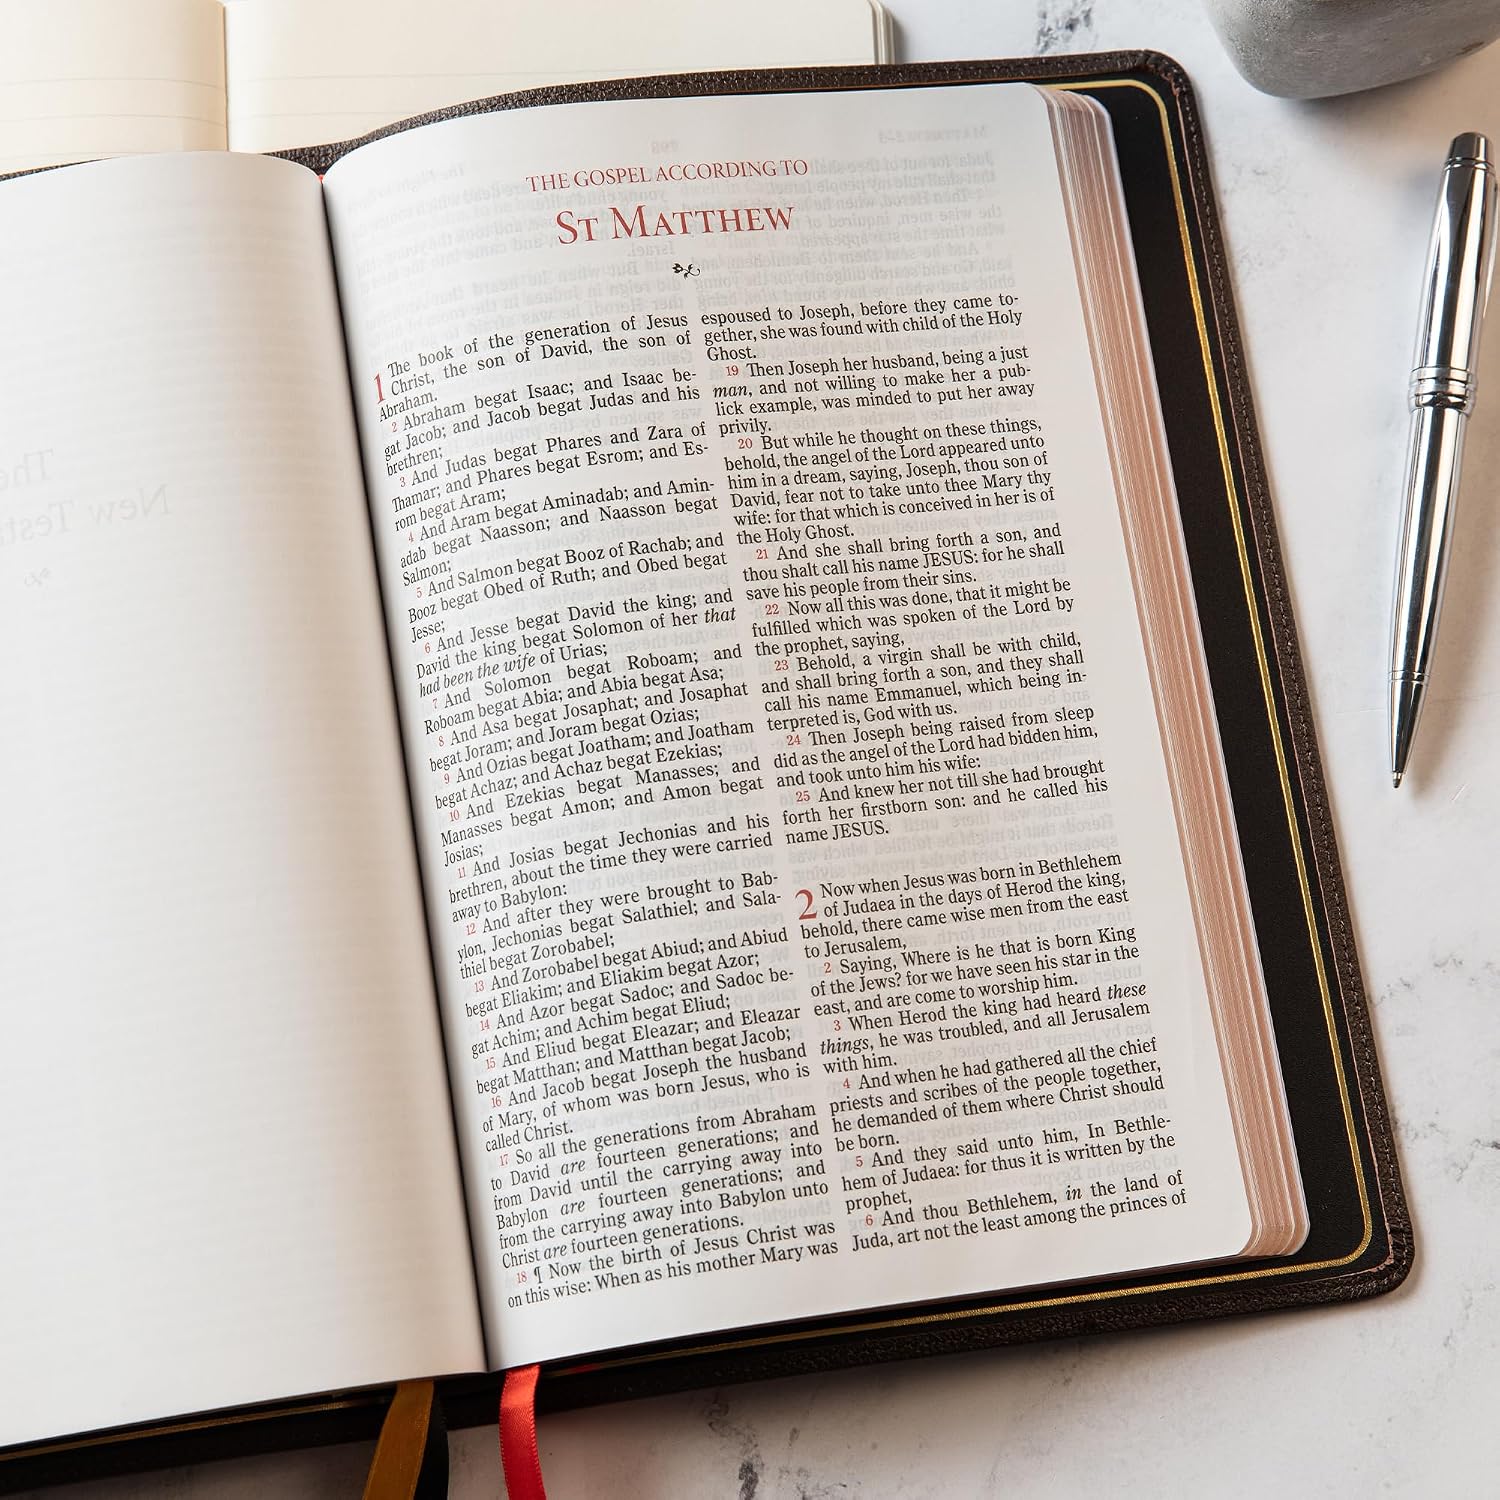 THE GOSPEL ACCORDING TO
ST MATTHEW
1 The book of the generation of Jesus
Christ, the son of David, the son of
Abraham.
2 Abraham begat Isaac; and Isaac be-
gat Jacob; and Jacob begat Judas and his
brethren;
3 And Judas begat Phares and Zara of
Thamar; and Phares begat Esrom; and Es-
rom begat Aram;
4 And Aram begat Aminadab; and Amin-
adab begat Naasson; and Naasson begat
Salmon;
5 And Salmon begat Booz of Rachab; and
Booz begat Obed of Ruth; and Obed begat
Jesse;
6 And Jesse begat David the king; and
David the king begat Solomon of her that
had been the wife of Urias;
7 And Solomon begat Roboam; and
Roboam begat Abia; and Abia begat Asa;
8 And Asa begat Josaphat; and Josaphat
begat Joram; and Joram begat Ozias;
9 And Ozias begat Joatham; and Joatham
begat Achaz; and Achaz begat Ezekias;
10 And Ezekias begat Manasses; and
Manasses begat Amon; and Amon begat
Josias;
11 And Josias begat Jechonias and his
brethren, about the time they were carried
away to Babylon:
12 And after they were brought to Bab-
ylon, Jechonias begat Salathiel; and Sala-
thiel begat Zorobabel;
13 And Zorobabel begat Abiud; and Abiud
begat Eliakim; and Eliakim begat Azor;
14 And Azor begat Sadoc; and Sadoc be-
gat Achim; and Achim begat Eliud;
15 And Eliud begat Eleazar; and Eleazar
begat Matthan; and Matthan begat Jacob;
16 And Jacob begat Joseph the husband
of Mary, of whom was born Jesus, who is
called Christ.
17 So all the generations from Abraham
to David are fourteen generations; and
from David until the carrying away into
Babylon are fourteen generations; and
from the carrying away into Babylon unto
Christ are fourteen generations.
18 ¶ Now the birth of Jesus Christ was
on this wise: When as his mother Mary was
espoused to Joseph, before they came to-
gether, she was found with child of the Holy
Ghost.
19 Then Joseph her husband, being a just
man, and not willing to make her a pub-
lick example, was minded to put her away
privily.
20 But while he thought on these things,
behold, the angel of the Lord appeared unto
him in a dream, saying, Joseph, thou son of
David, fear not to take unto thee Mary thy
wife: for that which is conceived in her is of
the Holy Ghost.
21 And she shall bring forth a son, and
thou shalt call his name JESUS: for he shall
save his people from their sins.
22 Now all this was done, that it might be
fulfilled which was spoken of the Lord by
the prophet, saying,
23 Behold, a virgin shall be with child,
and shall bring forth a son, and they shall
call his name Emmanuel, which being in-
terpreted is, God with us.
24 Then Joseph being raised from sleep
did as the angel of the Lord had bidden him,
and took unto him his wife:
25 And knew her not till she had brought
forth her firstborn son: and he called his
name JESUS.
2 Now when Jesus was born in Bethlehem
of Judaea in the days of Herod the king,
behold, there came wise men from the east
to Jerusalem,
2 Saying, Where is he that is born King
of the Jews? for we have seen his star in the
east, and are come to worship him.
3 When Herod the king had heard these
things, he was troubled, and all Jerusalem
with him.
4 And when he had gathered all the chief
priests and scribes of the people together,
he demanded of them where Christ should
be born.
5 And they said unto him, In Bethle-
hem of Judaea: for thus it is written by the
prophet,
6 And thou Bethlehem, in the land of
Juda, art not the least among the princes of